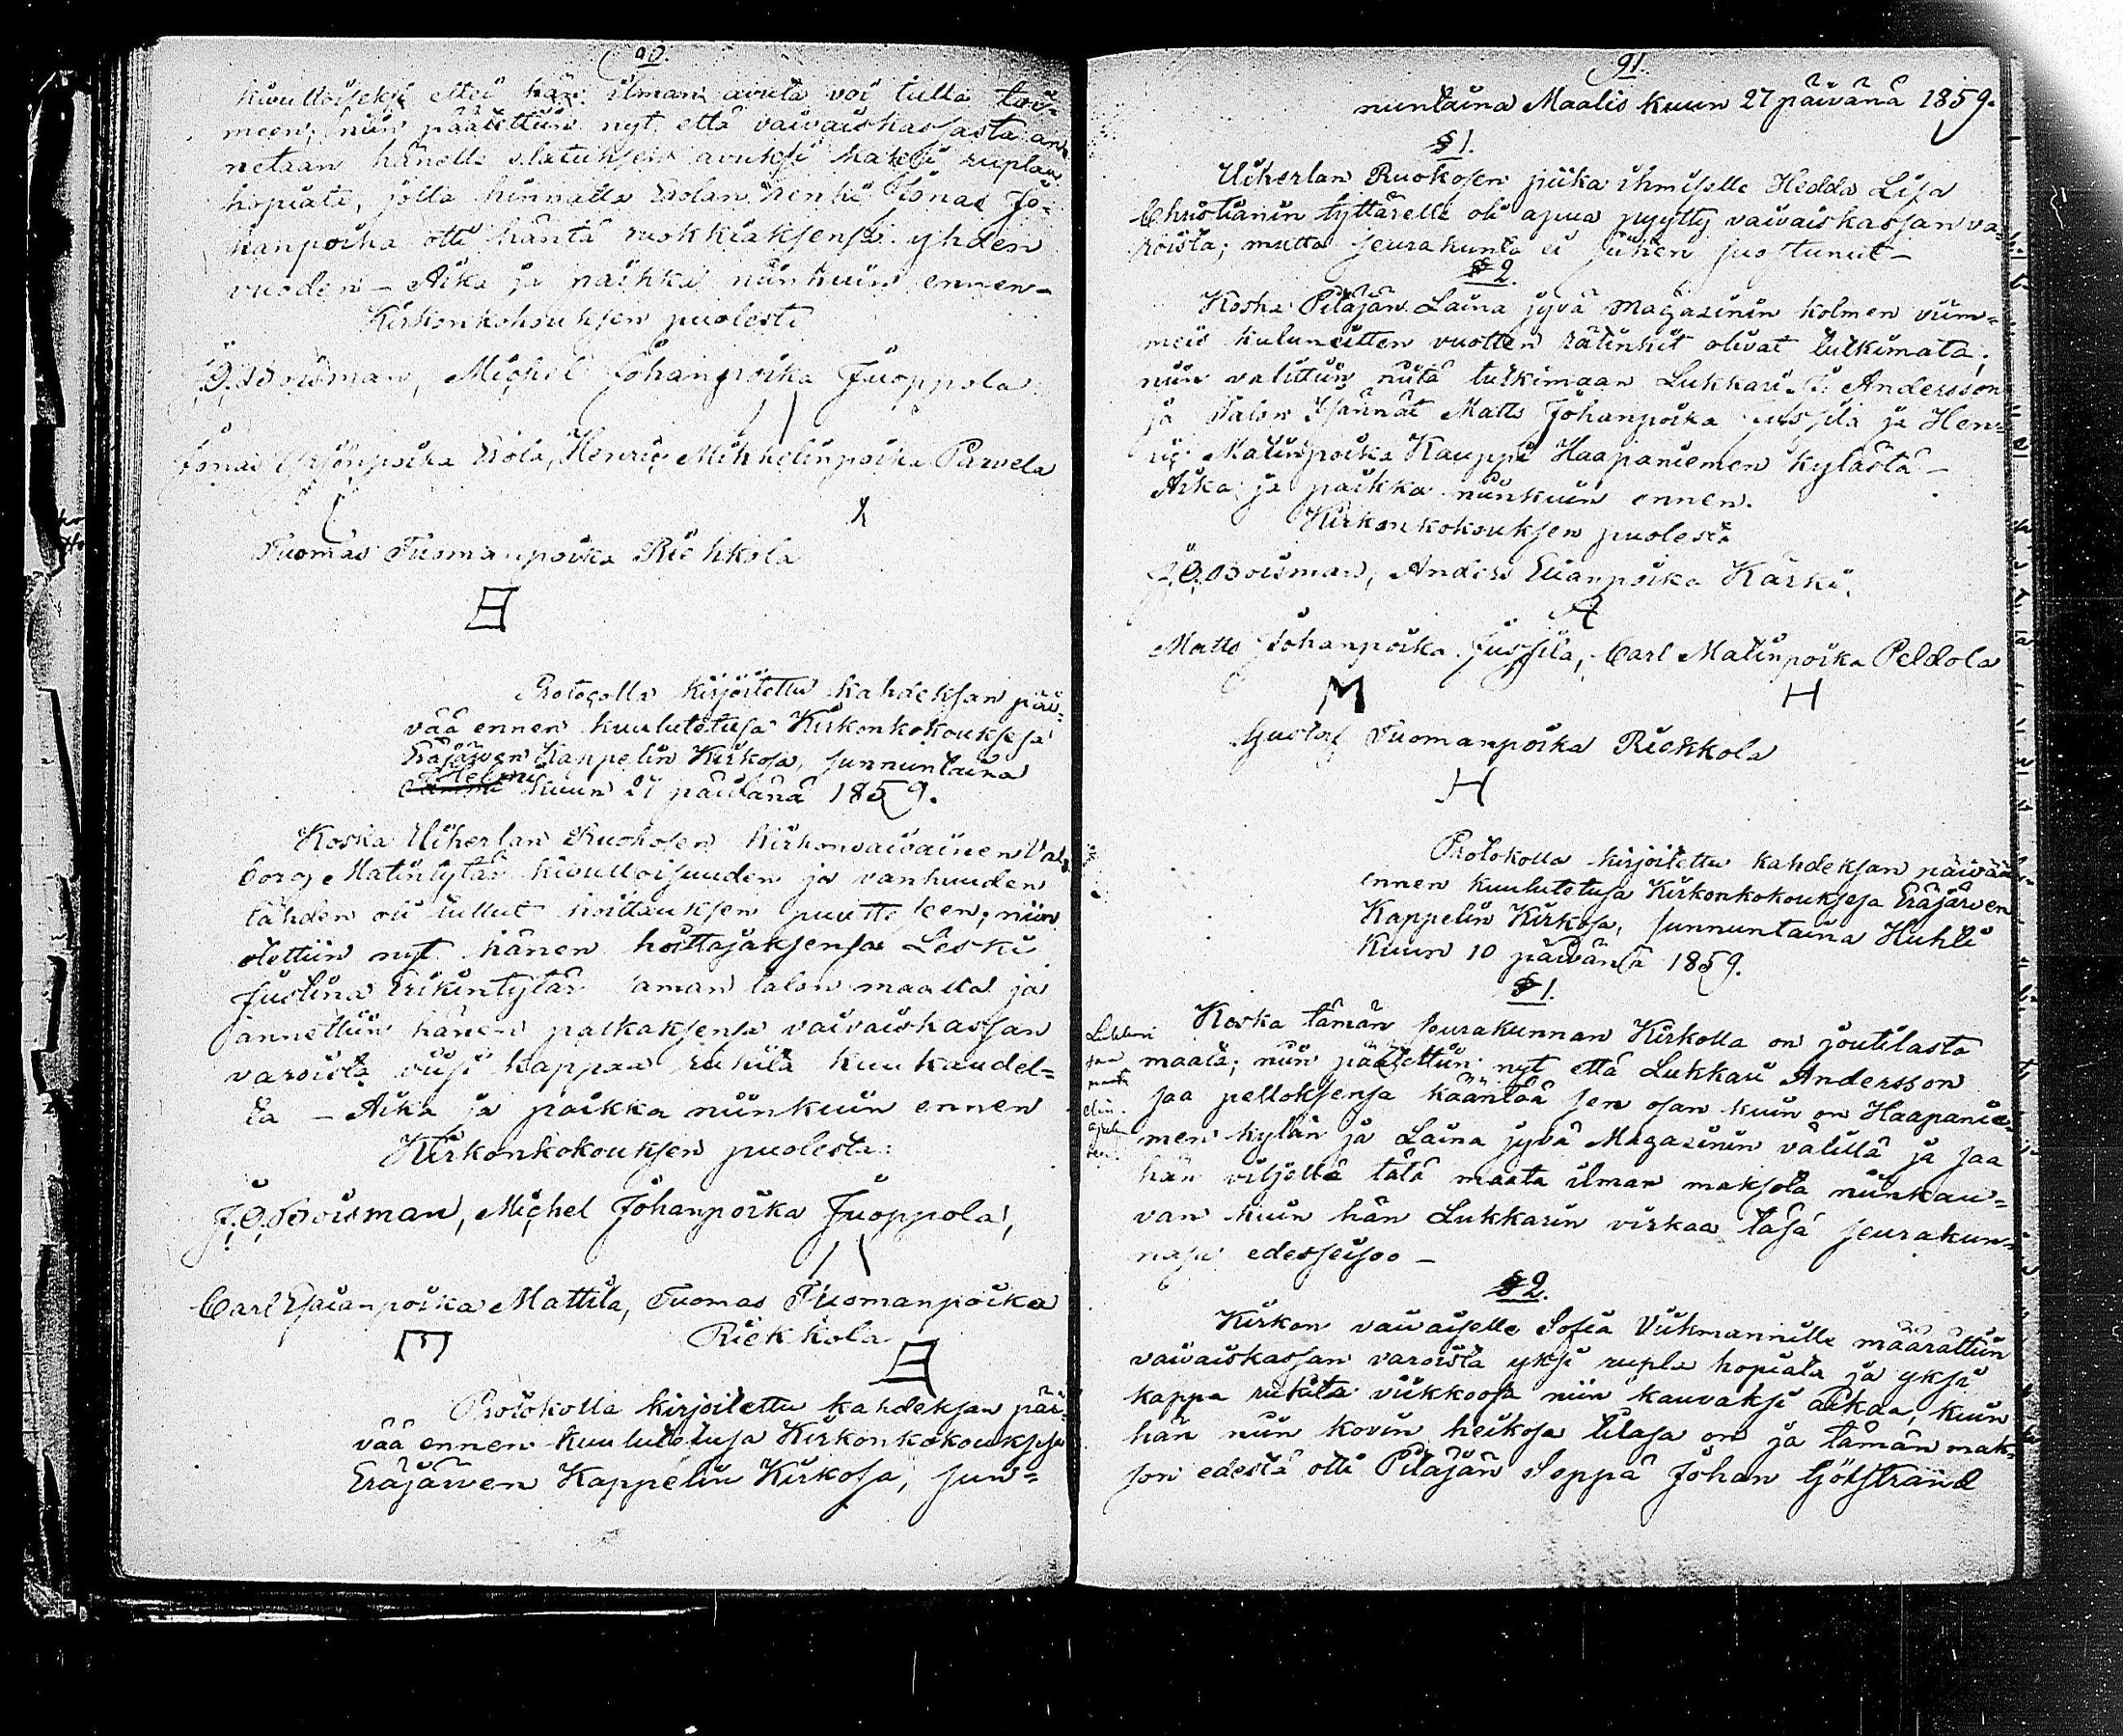 90.
kivulloiseksi ettei hän ilman avuta voi tulla toi-
meen; niin päätettiin nyt että vaivaiskassasta an-
netaan hänelle elatuksen avuksi kaksi ruplaa
hopiata, jolla hinnalla Erolan renki Jonas Jo-
hanpoika otti häntä ruokkiaksensa yhden
vuoden - Aika ja paikka niinkuin ennen -
Kirkonkokouksen puolesta
J.O. Boisman, Michel Johanpoika Juoppola
Jonas Yrjönpoika Erola, Henric Mikkelinpoika Parvela
Tuomas Tuomanpoika Riekkola
Protocolla kirjoitettu kahdeksan päi-
vää ennen kuulutetusa Kirkonkokouksesa
Eräjärven Kappelin Kirkosa, sunnuntaina
Helmi kuun 27 päivänä 1859.
Koska Uiherlan Ruokosen kirkonvaivainen Val-
borg Matintytär kivulloisuuden ja vanhuuden
tähden oli tullut hoittauksen puutteseen; niin
otettiin nyt hänen hoittajaksensa Leski
Justina Erikintytär saman talon maalla ja
annettiin hänen palkaksensa vaivaiskassan
varoista viisi kappaa rukiita kuukaudel-
ta - Aika ja paikka niinkuin ennen
Kirkonkokouksen puolesta:
J.O. Boisman, Michel Johanpoika Juoppola,
Carl Esaianpoika Mattila, Tuomas Tuomanpoika
Riekkola
Protokolla kirjoitettu kahdeksan päi-
vää ennen kuulutetusa Kirkonkokouksesa
Eräjärven Kappelin Kirkosa, sun-
91.
nuntaina Maalis kuun 27 päivänä 1859.
§ 1.
Uiherlan Ruokosen piika ihmiselle Hedda Lisa
Christianin tyttärelle oli apua pyytty vaivaiskassan va-
roista; mutta seurakunta ei siihen suostunut -
§ 2.
Koska Pitäjän Laina jyvä Magasinin kolmen viim-
meis kuluneitten vuotten räkinkit olivat tutkimata;
niin valittiin niitä tutkimaan Lukkari Andersson
ja Talon Isännät Matts Johanpoika Jussila ja Hen-
ric Matinpoika Kauppi Haapaniemen kylästä -
Aika ja paikka niinkuin ennen.
Kirkonkokouksen puolesta
J.O. Boisman, Anders Elianpoika Kärki.
Matts Johanpoika Jussila, Carl Matinpoika Peldola
M
H
Gustaf Tuomanpoika Riekkola
H
Protokolla kirjoitettu kahdeksan päivää
ennen kuulutetusa Kirkonkokouksesa Eräjärven
Kappelin Kirkosa, sunnuntaina Huhti
kuun 10 päivänä 1859.
§ 1.
Koska tämän seurakunnan Kirkolla on joutilasta
maata; niin päätettiin nyt että Lukkari Andersson
saa pelloksensa kääntää sen osan kuin on Haapanie-
men kylän ja Laina jyvä Magasinin välillä ja saa
hän viljellä tätä maata ilman maksota niinkau-
van kuin hän Lukkarin virkaa täsä seurakun-
nasa edesseisoo -
Lukkari
saa
maata
§ 2.
Kirkon vaivaiselle Sofia Viikmannille määrättiin
vaivaiskassan varoista yksi rupla hopiata ja yksi
kappa rukiita viikkoosa niin kauvaksi aikaa, kuin
hän niin kovin heikosa tilasa on ja tämän mak-
son edestä otti Pitäjän Seppä Johan Götstrand